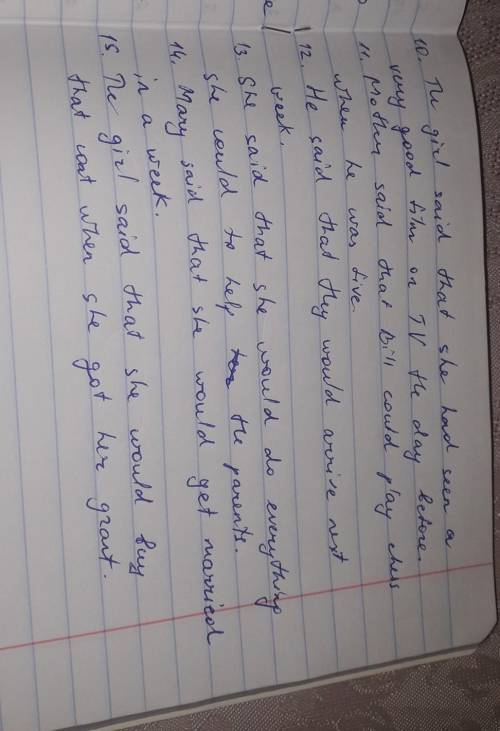 10. The girl said that she had seen a
very good film on TV the day before.
11. Mother said that Bill could play chess
when he was five.
12. He said that they would arrive next
week.
13. She said that she would do everything
she could to help the parents.
14. Mary said that she would get married
in a week.
15. The girl said that she would buy
that coat when she got her grant.